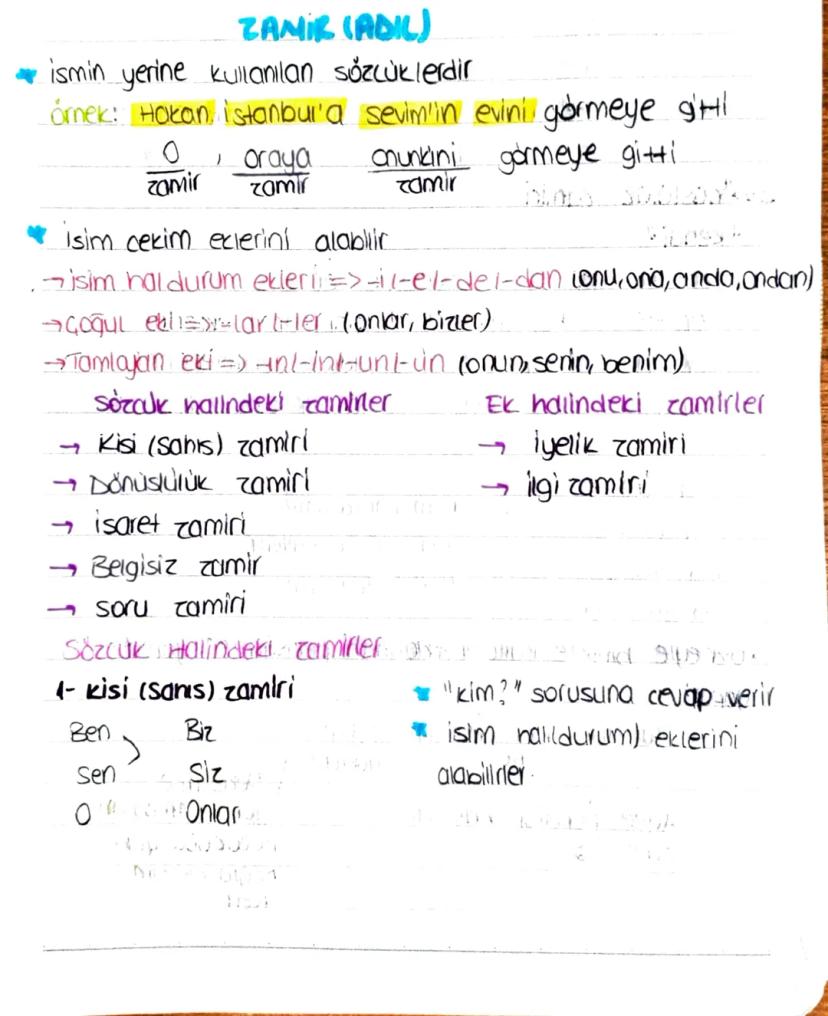 ZAMİR (ADIL)
ismin yerine kullanılan sözcüklerdir
örnek: Hakan, istanbul'a sevim'in evini görmeye gitti
O , oraya onunkini görmeye gitti
zamir zamir zamir
isim cekim eklerini alabilir
→ isim hal durum ekleri => -i/-e/-de/-dan (onu, ona, onda, ondan)
→ Çoğul eki => -lar/-ler (onlar, bizler)
→ Tamlayan eki => -ın/-in/-un/-ün (onun, senin, benim)
Sözcük halindeki zamirler Ek halindeki zamirler
→ Kisi (sahıs) zamiri → iyelik zamiri
→ Dönüslülük zamiri → ilgi zamiri
→ isaret zamiri
→ Belgisiz zamir
→ soru zamiri
Sözcük Halindeki zamirler
1- kisi (sahıs) zamiri "kim?" sorusuna cevap verir
Ben Biz isim hal(durum) eklerini
Sen Siz alabilirler.
O Onlar